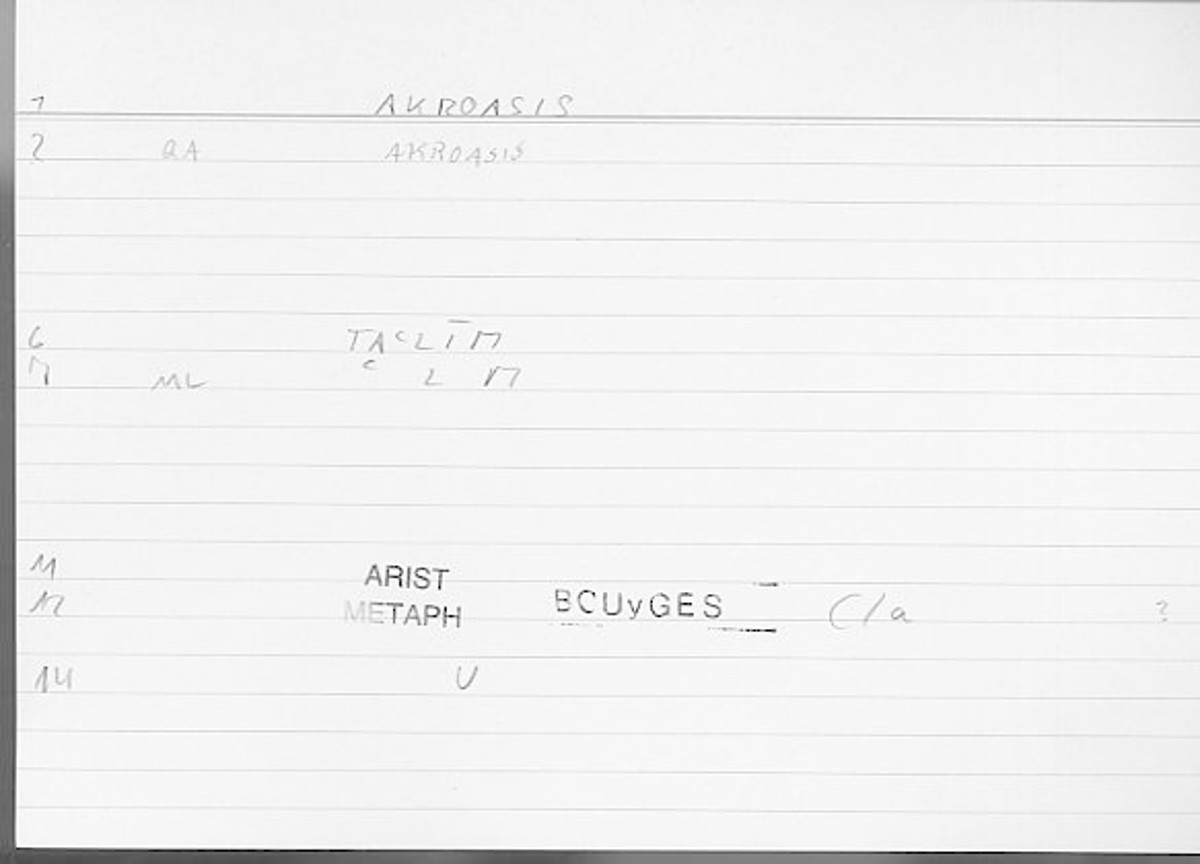 1 AKROASIS
2 QA AKROASIS
6 TAᶜLĪM
7 ML ᶜ L M
11 ARIST
12 METAPH BCUyGES C/a ?
14 U